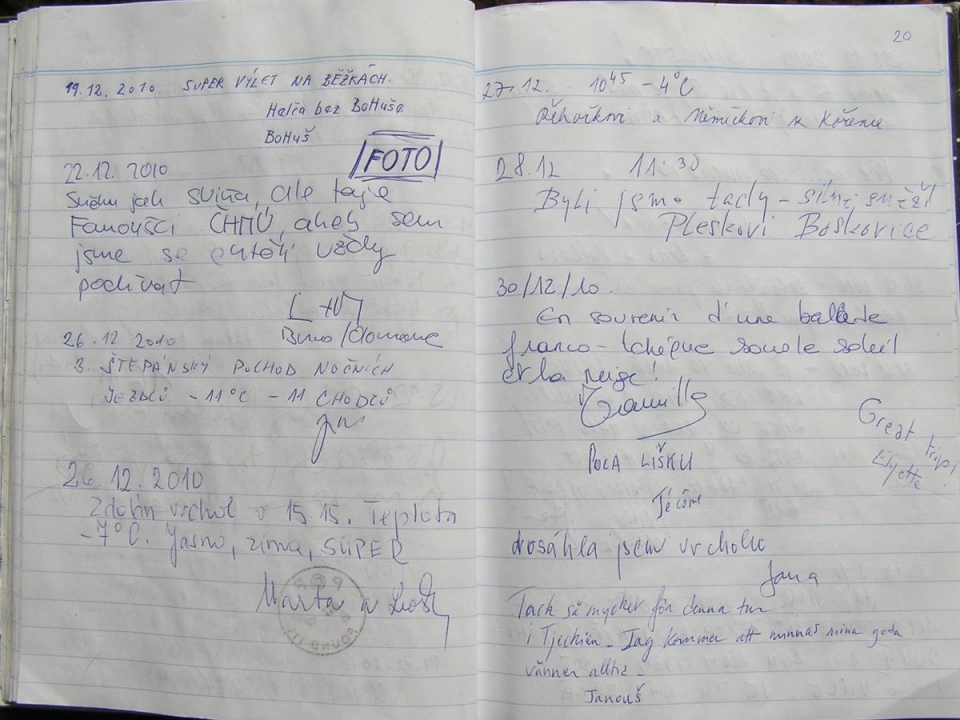 19.12.2010 SUPER VÝLET NA BĚŽKÁCH.
Haťťa bez BoHuše
BoHuš
FOTO
22.12.2010
jak sviňa, ale taje
Fanoušci ČHMÚ, aneb sem
jsme se chtěli vždy
podívat
Brno/Olomouc
26.12 2010
3. ŠTĚPÁNSKÝ POCHOD NOČNÍCH
JEZDCŮ -11°C - 11 CHODCŮ
26.12.2010
Zdolán vrchol v 15.15. Teplota
-7°C. Jasno, zima, SUPER
Marta a
20
27.12. 10 45 -4°C
Řiháčkovi a Němečkovi
28.12 11:30
Byli jsme tady - silně sněží
Pleskovi Boskovice
30/12/10.
En souvenir d'une ballade
franco-tchèque sous le soleil
et la neige!
Camille
POCA LIŠKU
Great trip!
Jérôme
dosáhla jsem vrcholu
Jana
Tack så mycket för denna tur
i Tjeckien. Jag kommer att minnas mina goda
vänner alltid.
Janouš